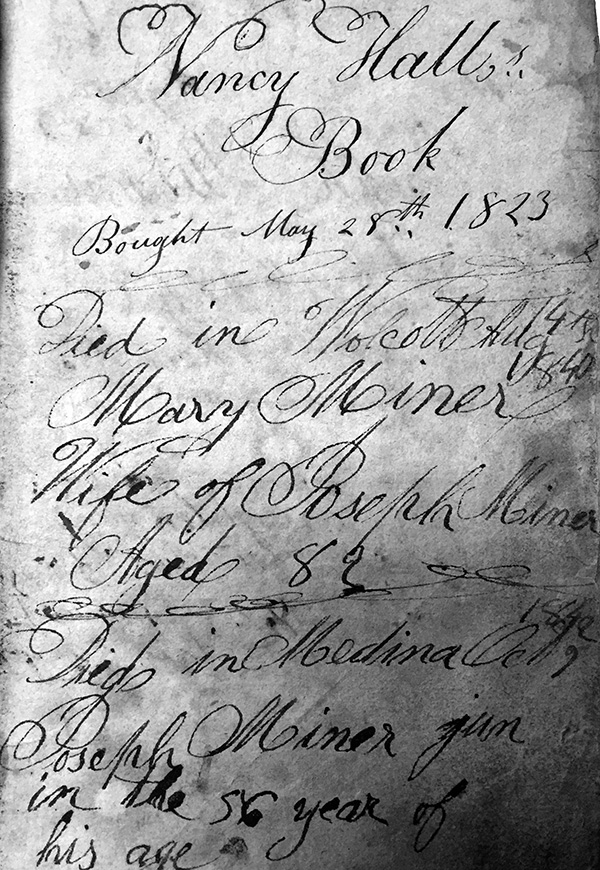 Nancy Hall's
Book
Bought May 28th 1823
Died in Wolcott Aug 14th
1840
Mary Miner
Wife of Joseph Miner
Aged 82
Died in Medina Oct 9
Joseph Miner jun
in the 56 year of
his age